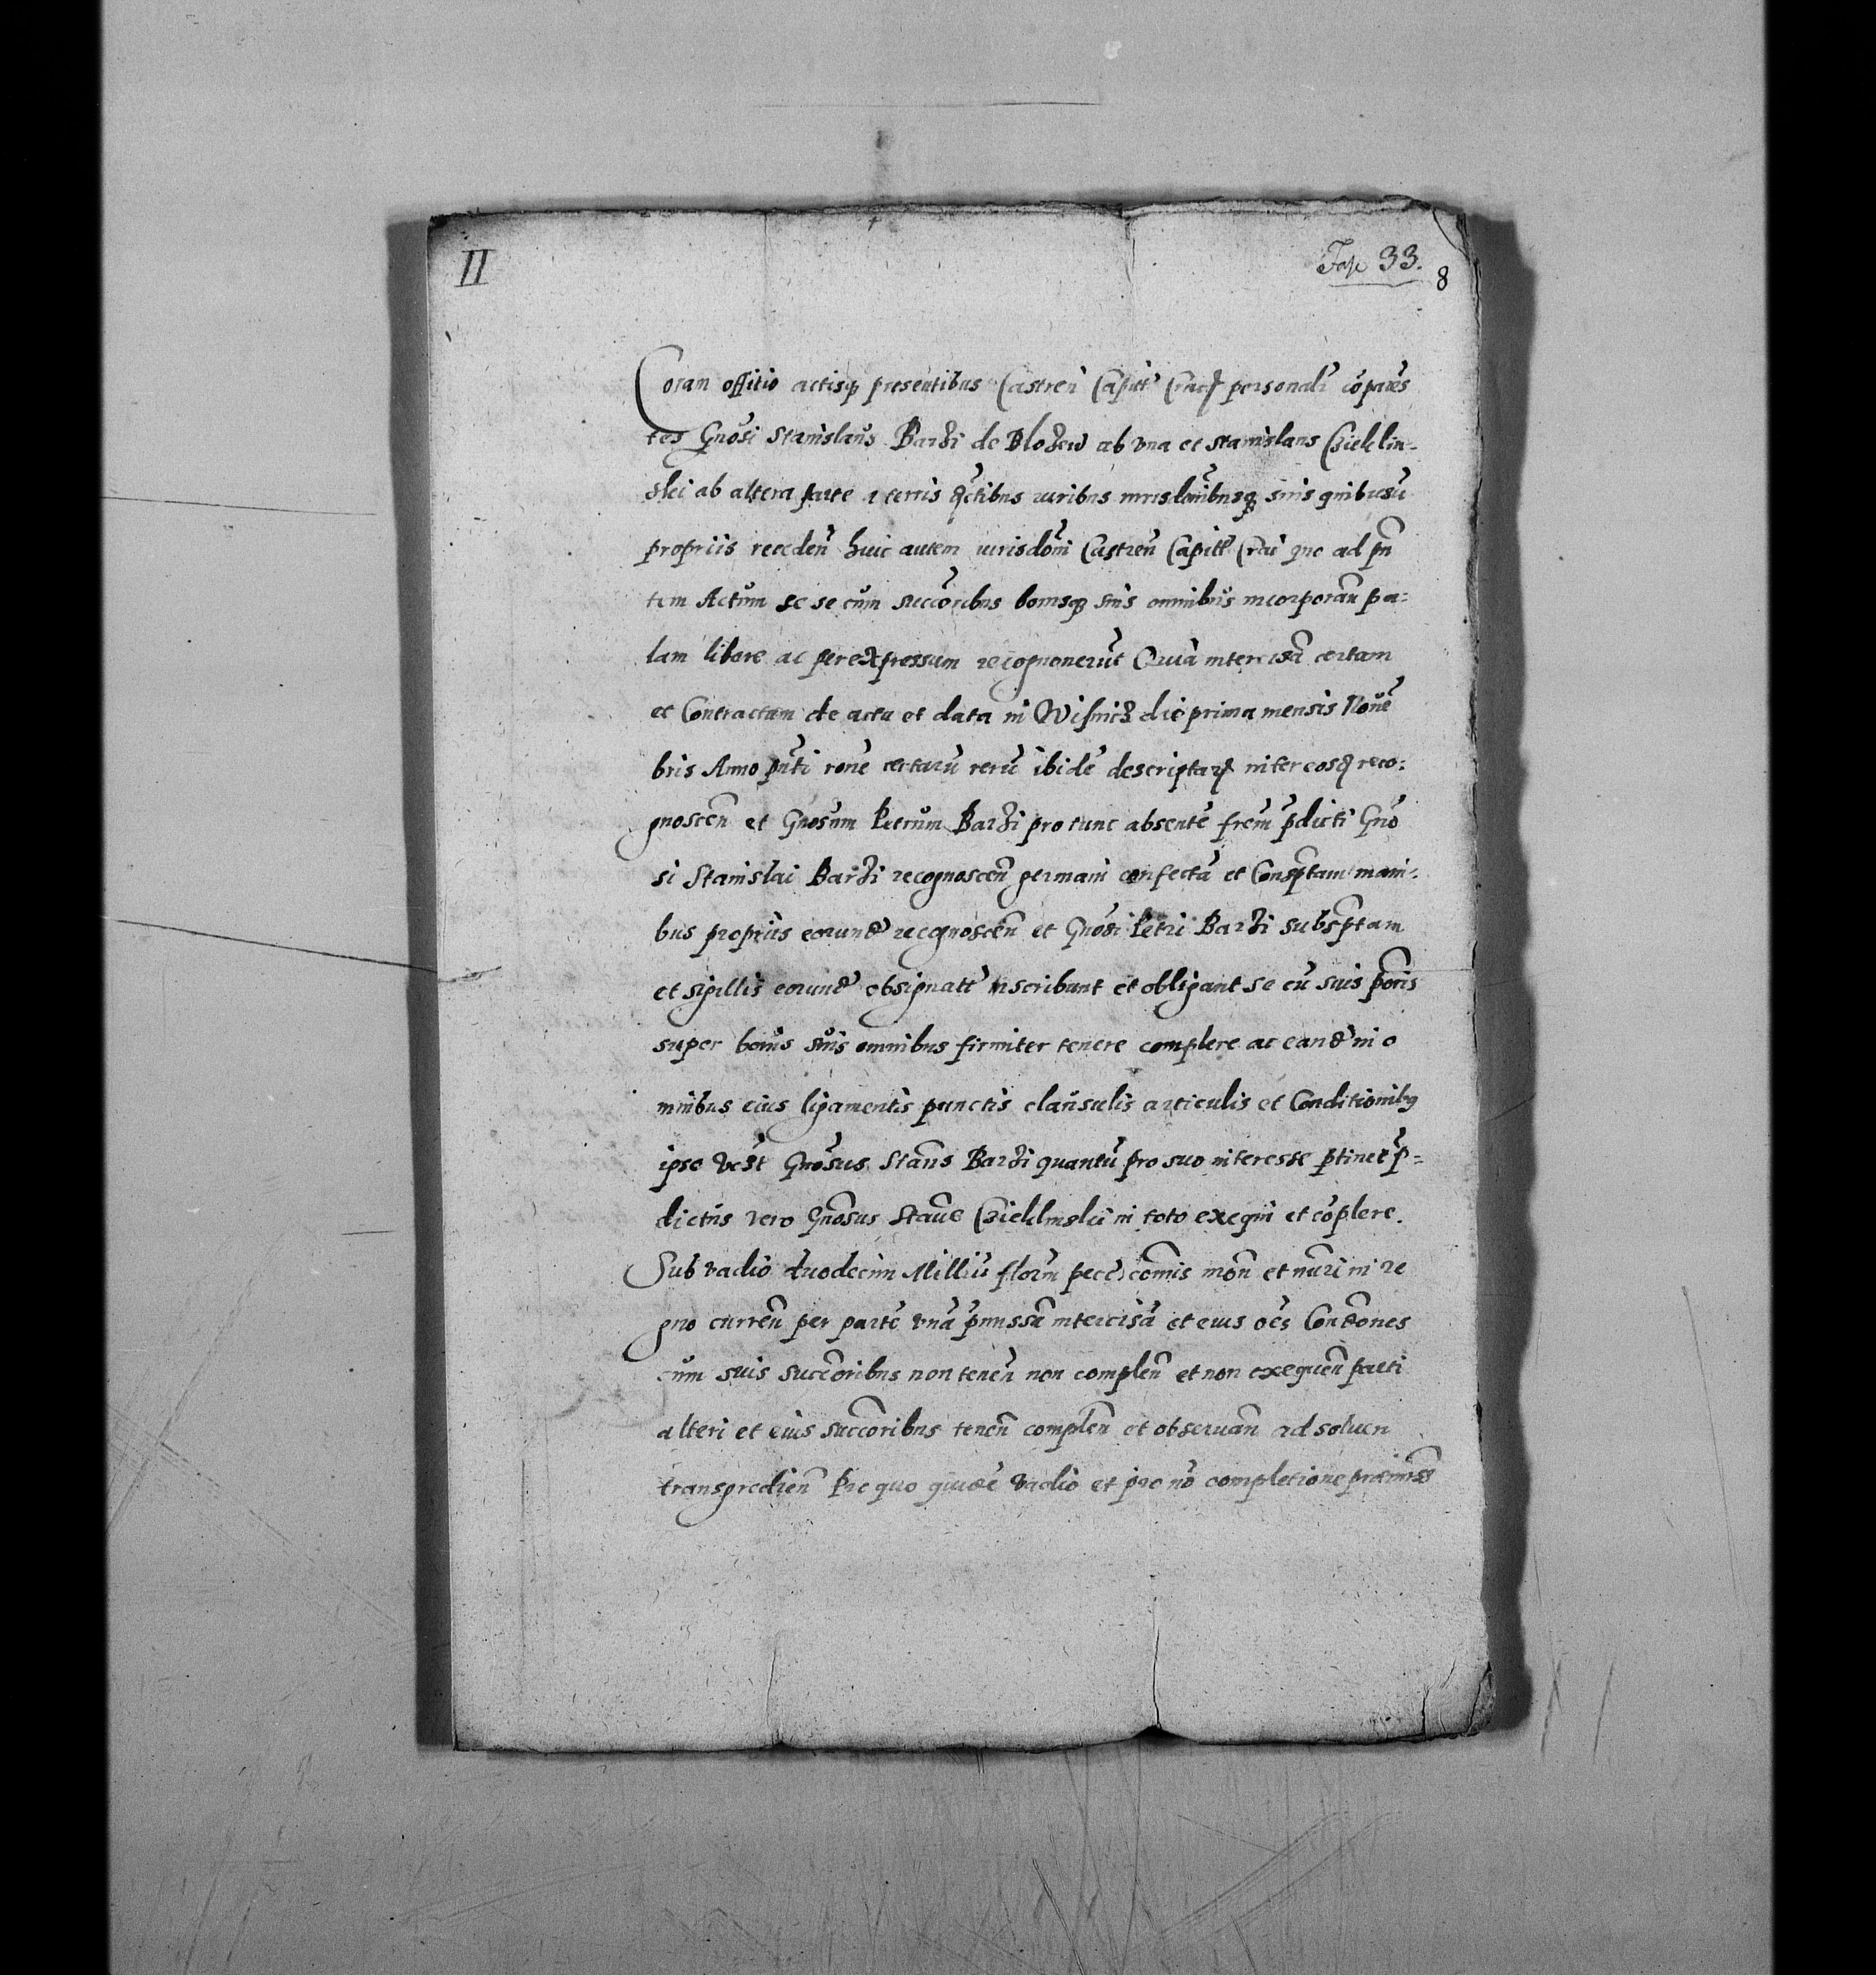 II
Fasc 33.
8
Coram offitio actisq presentibus Castren Capitt Crac personalr cōparēs
tes Gnosi Stanislaus Barzi de Blozew ab vna et Stanislaus Czieklin-
ski ab altera parte terris iuribus iurisdoñibusq suis quibusū
propriis receden huic autem iurisdoni Castren Capitt quo ad pn
tem Actum se se cum succoribus bonisq suis omnibus incorporan pa-
lam libere ac per expressum recognouerūt Quia intercisā certam
et Contractum de actu et data in Wisnicz die prima mensis Noue
bris Anno pnti rone certarū rerū ibidē descriptar inter eosd reco:
gnoscen et Gnosum Petrum Barzi pro tunc absentē frem pdicti Gno
si Stanislai Barzi recognoscen germani confectā et Consptam mani-
bus propriis eorund recognoscen et Gnosi Petri Barzi subsptam
et sigillis eorund obsignatt inscribunt et obligant se cū suis
super bonis suis omnibus firmiter tenere complere ac eand in o
mnibus eius ligamentis punctis clausulis articulis et Conditionibq
ipse Gnosus Stans Barzi quantū pro suo interesse ptinet p-
dictus vero Gnosus Stans Czieklinski in toto exequi et cōplere.
Sub vadio duodecim Milliū florm pecc cōmis mon et nūri in re
gno curren per partē vnā pmissā intercisā et eius oēs Condones
cum suis succoribus non tenen non complen et non exequen parti
alteri et eius succoribus tenen complen et obseruan ad soluen
transgredien Pro quo quidē vadio et pro nō completione premiss